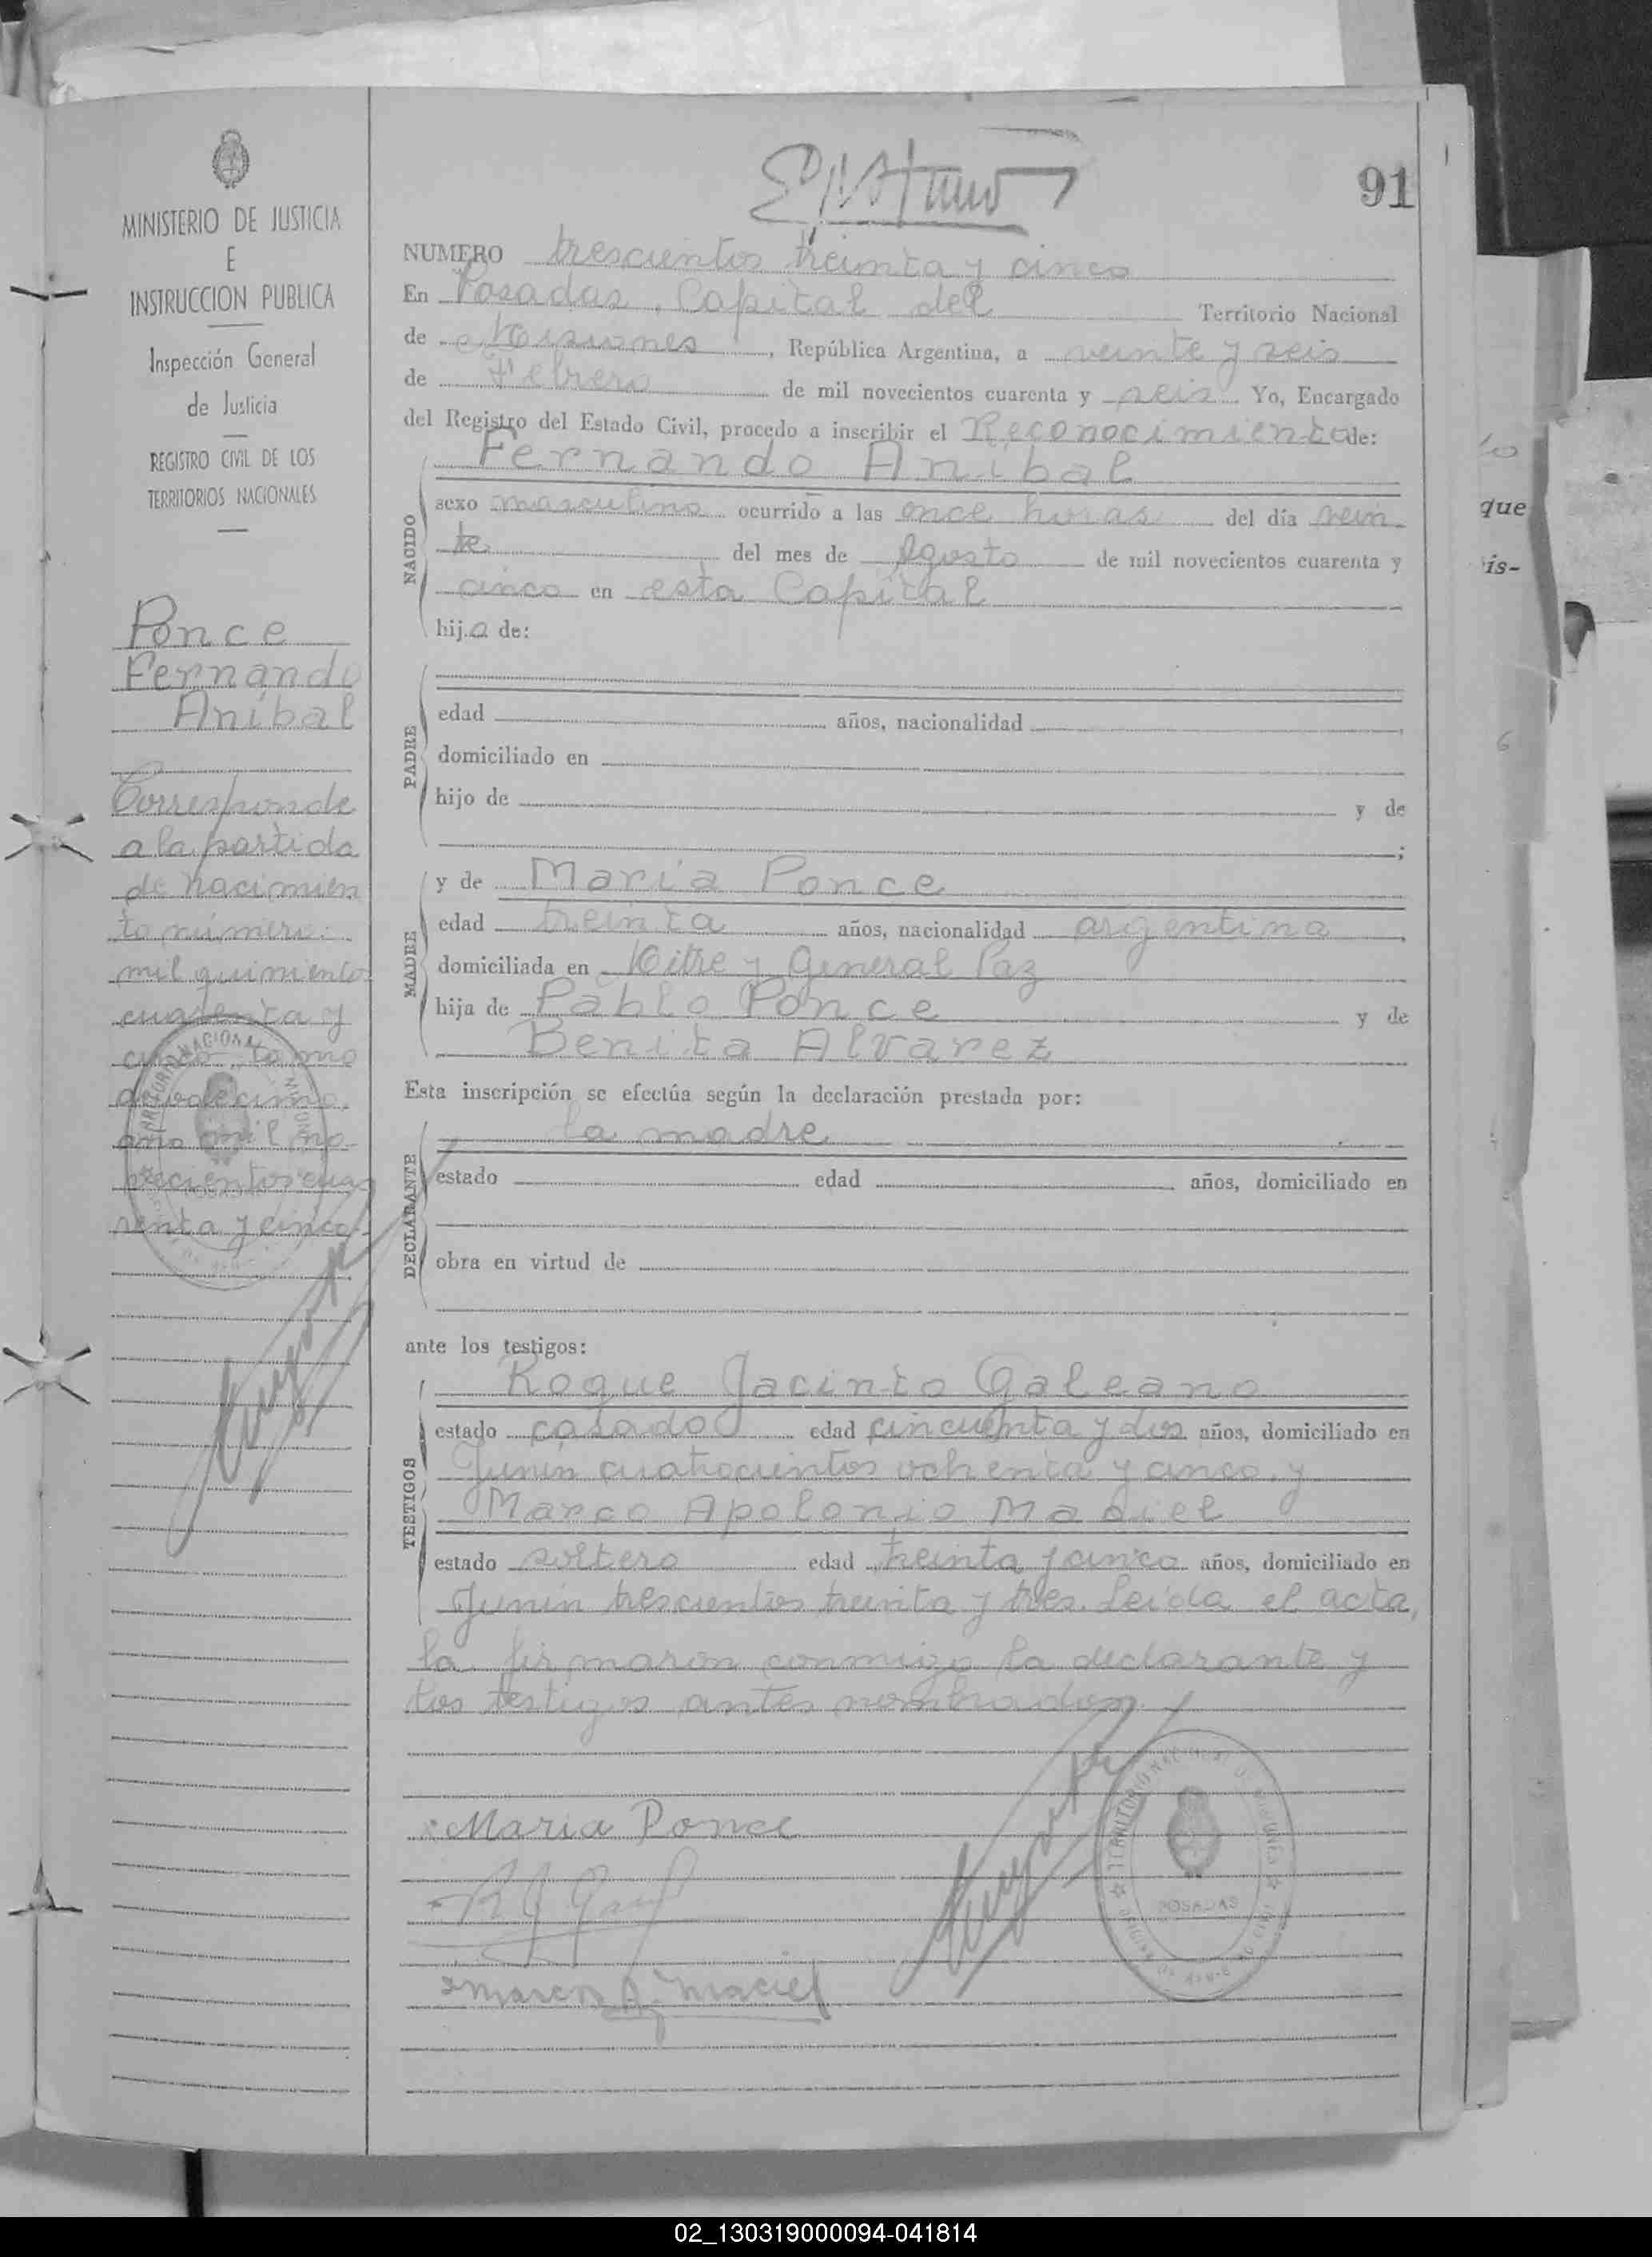 91
MINISTERIO DE JUSTICIA
E
INSTRUCCION PUBLICA
Inspección General
de Justicia
REGISTRO CIVIL DE LOS
TERRITORIOS NACIONALES
Ponce
Fernando
Anibal
Corresponde
a la partida
de nacimien
to número:
mil quinientos
cuarenta y
cinco tomo
año mil no-
vecientos cua
renta y cinco.
NUMERO trescientos treinta y cinco
En Posadas, Capital del Territorio Nacional
de Misiones, República Argentina, a veinte y seis
de Febrero de mil novecientos cuarenta y seis Yo, Encargado
del Registro del Estado Civil, procedo a inscribir el Reconocimiento de:
Fernando Anibal
NACIDO
sexo masculino ocurrido a las once horas del día vein-
te del mes de Agosto de mil novecientos cuarenta y
cinco en esta Capital
hijo de:
PADRE
edad años, nacionalidad
domiciliado en
hijo de y de
;
MADRE
y de Maria Ponce
edad treinta años, nacionalidad argentina
domiciliada en Mitre y General Paz
hija de Pablo Ponce y de
Benita Alvarez
Esta inscripción se efectúa según la declaración prestada por:
DECLARANTE
la madre
estado edad años, domiciliado en
obra en virtud de
ante los testigos:
TESTIGOS
Roque Jacinto Galeano
estado casado edad cincuenta y dos años, domiciliado en
Junin cuatrocientos ochenta y cinco y
Marco Apolonio Maciel
estado soltero edad treinta y cinco años, domiciliado en
Junin trescientos treinta y tres. Leida el acta,
la firmaron conmigo la declarante y
los testigos antes nombrados.
Maria Ponce
Marcos A. Maciel
POSADAS
que
is-
02_130319000094-041814